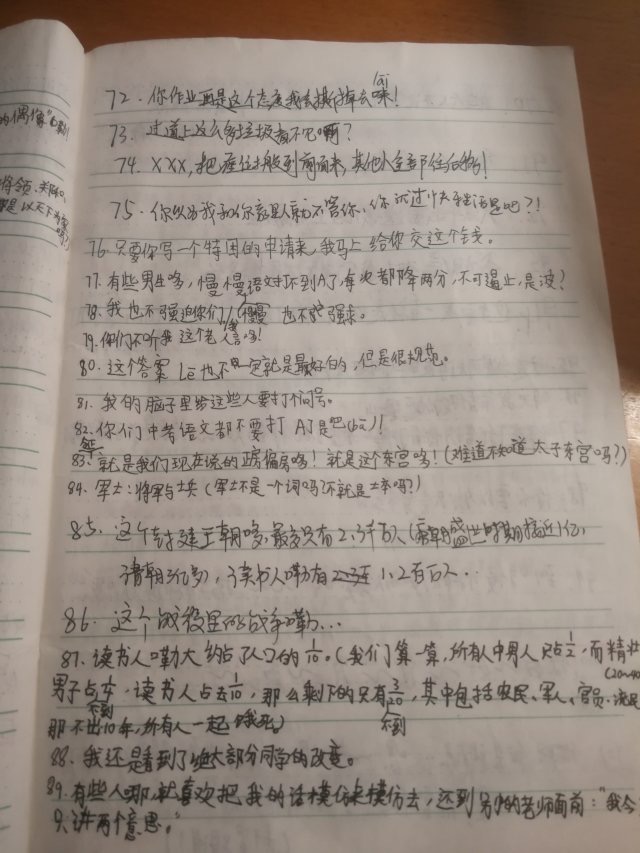 的偶像"
将领、
是以天下为
72.你作业再是这个态度我会撕掉去嘞(lai)!
73.过道上这么多垃圾看不见啊?
74.XXX,把座位搬到前面来,其他人全部往后挪!
75.你以为我和你家里人就不管你,你就过快乐生活是吧?!
76.只要你写一个特困的申请来,我马上给你交这个钱。
77.有些男生哆,慢慢语文打不到A了,每次都降两分,不可遏止,是波?
78.我也不强迫你们,慢慢也不强求。
79.你们不听我这个老人言哆!
80.这个答案 Le 也不一定就是最好的,但是很规范。
81.我的脑子里梦这些人要打个问号。
82.你们中考语文都不要打A了是吧(ba)!
83.就是我们现在说的正房偏房哆!就是这个东宫哆!(难道不知道太子东宫吗?)
84.军士:将军与士兵(军士不是一个词吗?不就是士卒吗?)
85.这个封建王朝哆,最多只有2、3千万人(
盛世时期接近1亿,
清朝3亿多),读书人嘞有1、2百万人…
86.这个战役里的战争嘞…
87.读书人嘞大约占了人口的1/10。(我们算一算,所有人中男人只占1/2,而精壮
(20~40
男子占不到,读书人占去1/10,那么剩下的只有不到3/20,其中包括农民、军人、官员、
那不出10年,所有人一起饿死)
88.我还是看到了绝大部分同学的改变。
89.有些人哪,就喜欢把我的话模仿来模仿去,还到别的老师面前:"我今
只讲两个意思。"